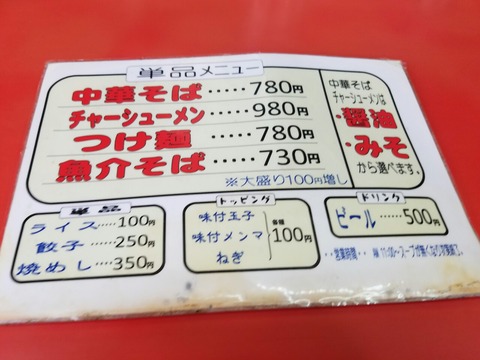 単品メニュー
中華そば……780円
チャーシューメン……980円
つけ麺……780円
魚介そば……730円
※大盛り100円増し
中華そば
チャーシューメンは
・醤油
・みそ
から選べます。
単品
ライス……100円
餃子……250円
焼めし……350円
トッピング
味付玉子
味付メンマ
ねぎ
各種
100円
ドリンク
ビール……500円
・・営業時間・・ AM 11:00〜スープが無くなり次第終了。